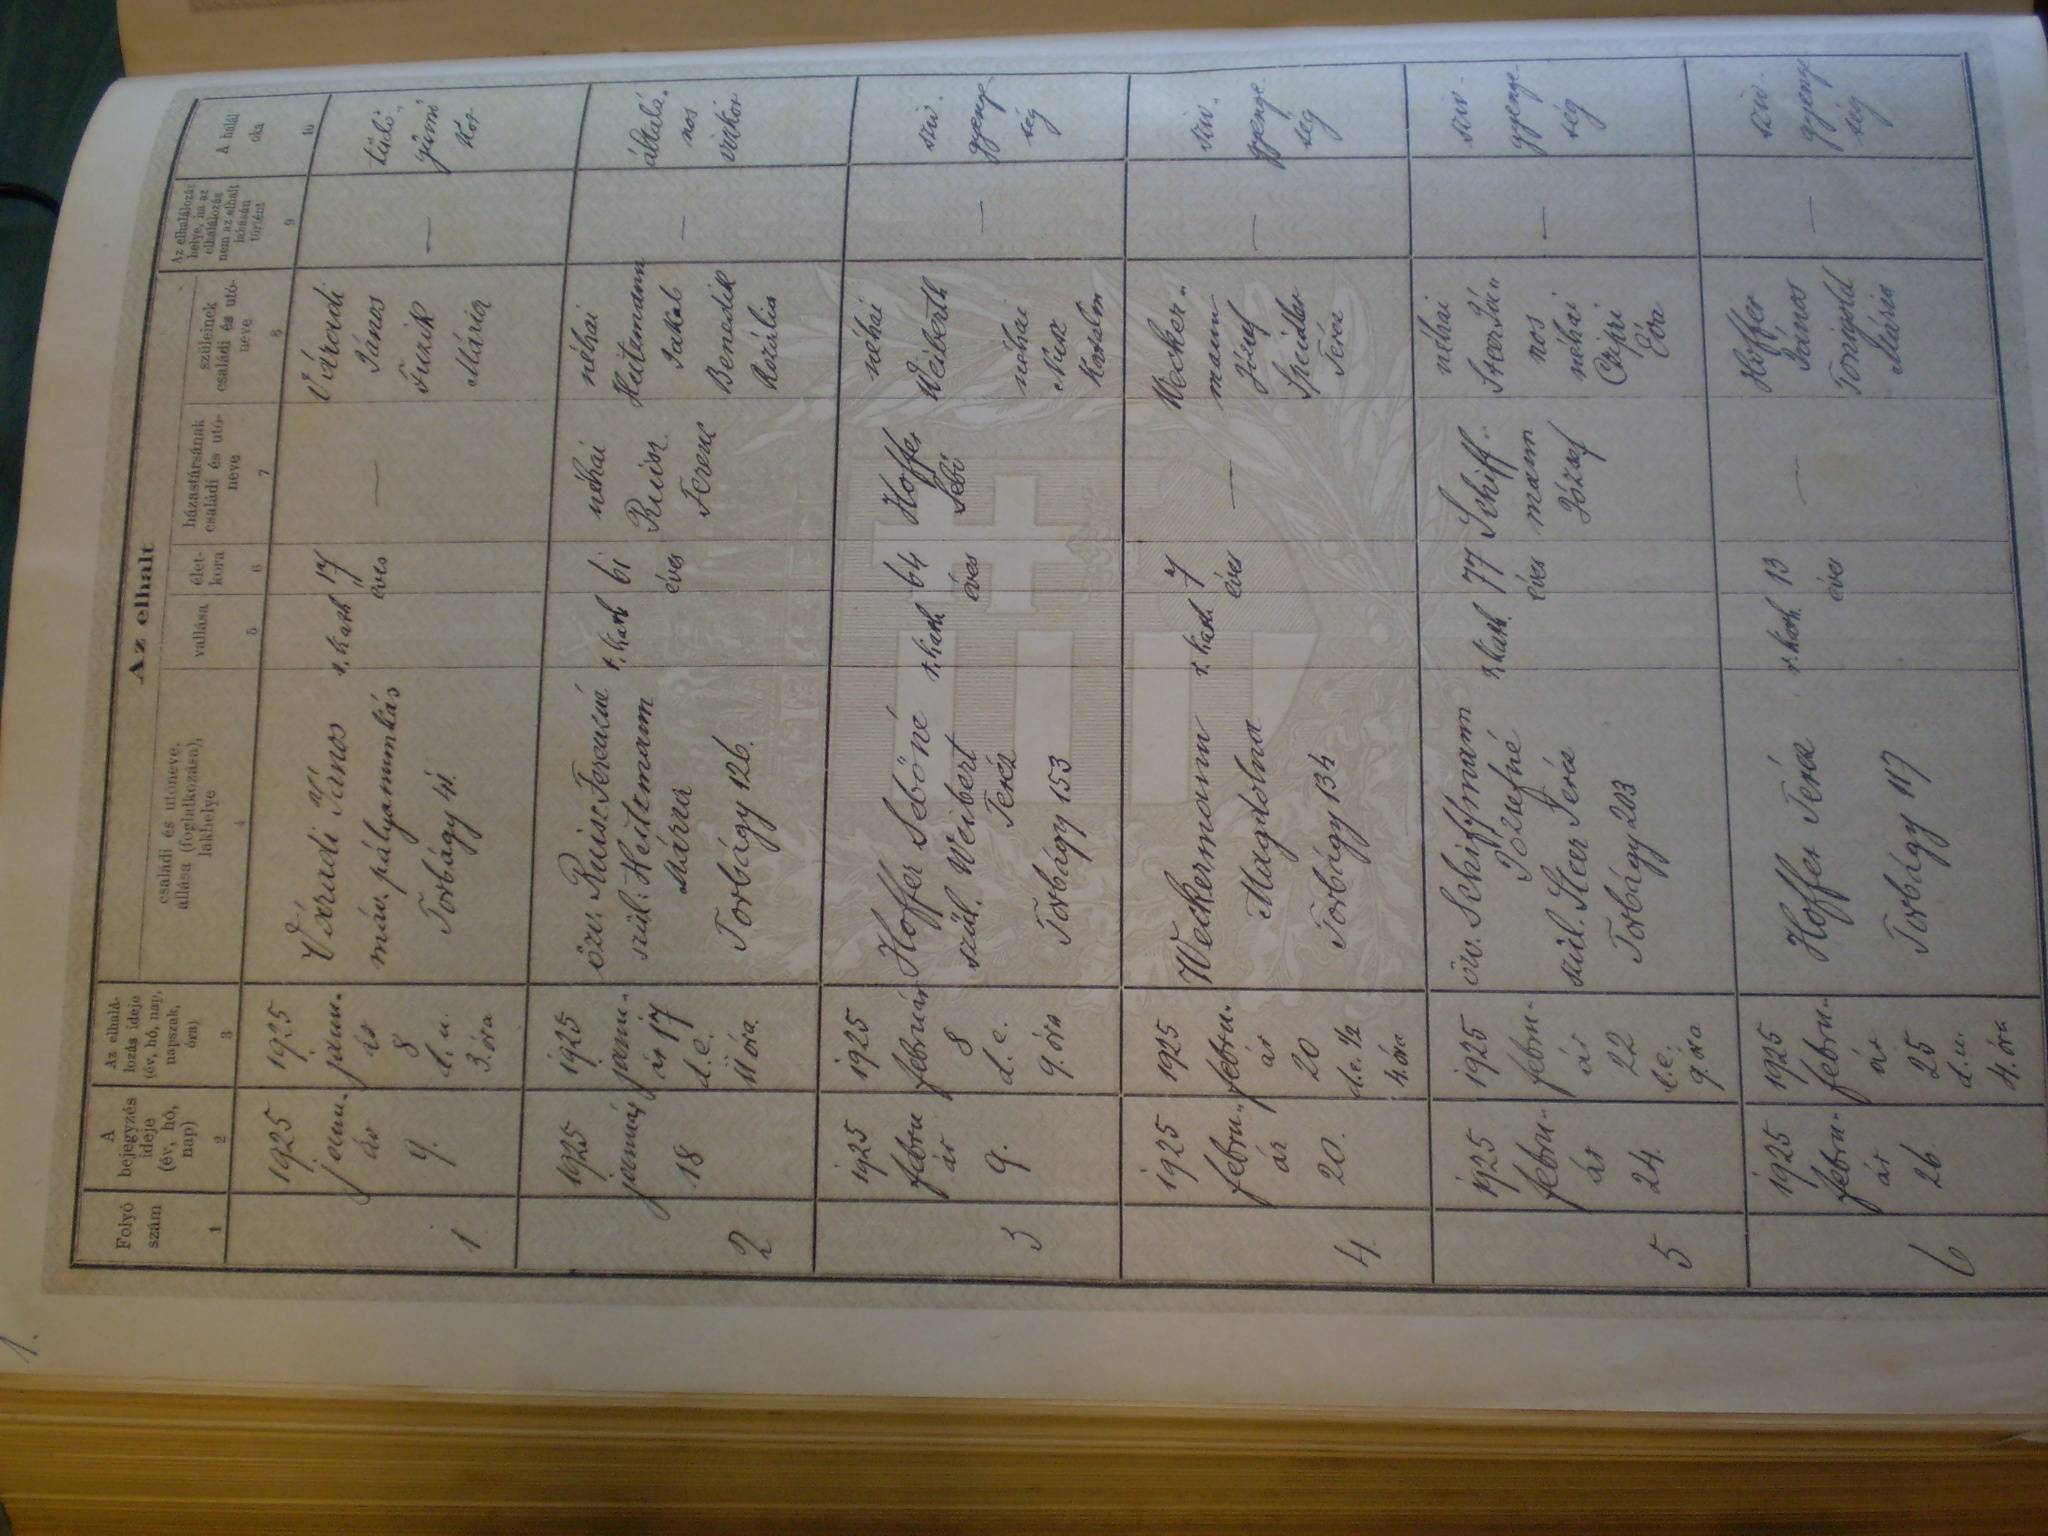 1.
Az elhalt
Folyó
szám
A
bejegyzés
ideje
(év, hó,
nap)
Az elhalá-
lozás ideje
(év, hó, nap,
napszak,
óra)
családi és utóneve,
állása (foglalkozása),
lakhelye
vallása
élet-
kora
házastársának
családi és utó-
neve
szüleinek
családi és utó-
neve
Az elhalálozás
helye, ha az
elhalálozás
nem az elhalt
lakásán
történt
A halál
oka
1
2
3
4
5
6
7
8
9
10
1.
1925
janu-
ár
9.
1925
janu-
ár
8
d. u.
3. óra
Váradi János
máv. pályamunkás
Torbágy 41.
r. kath
17
éves
—
Váradi
János
Turik
Mária
—
tüdő-
gümő
kór
2
1925
január
18
1925
janu-
ár 17
d. e.
11 óra.
özv. Ruisz Ferencné
szül. Heitemann
Mária
Torbágy 126.
r. kath
61
éves
néhai
Ruisz
Ferenc
néhai
Heitemann
Jakab
Benedik
Rozália
—
általá-
nos
vízkór
3
1925
febru
ár
9.
1925
február
8
d. e.
9. óra
Hoffer Sebőné
szül. Weibert
Teréz
Torbágy 153
r. kath
64
éves
Hoffer
Sebő
néhai
Weiberth
néhai
Katalin
—
szív-
gyenge
ség
4.
1925
febru-
ár
20.
1925
febru-
ár
20
d. e. ½
4. óra
Weckermann
Magdolna
Torbágy 134
r. kath.
7
éves
—
Wecker-
mann
József
Speidler
Teréz
—
szív-
gyenge
ség
5
1925
febru-
ár
24.
1925
febru-
ár
22
d. e.
9. óra
özv. Schiffmann
Józsefné
szül. Steer Teréz
Torbágy 203
r. kath.
77
éves
Schiff-
mann
József
néhai
Steer Já-
nos
néhai
Czipri
Éva
—
szív-
gyenge
ség
6
1925
febru-
ár
26.
1925
febru-
ár
25
d. u.
4. óra
Hoffer Teréz
Torbágy 117
r. kath.
13
éves
—
Hoffer
János
Mária
—
szív-
gyenge
ség